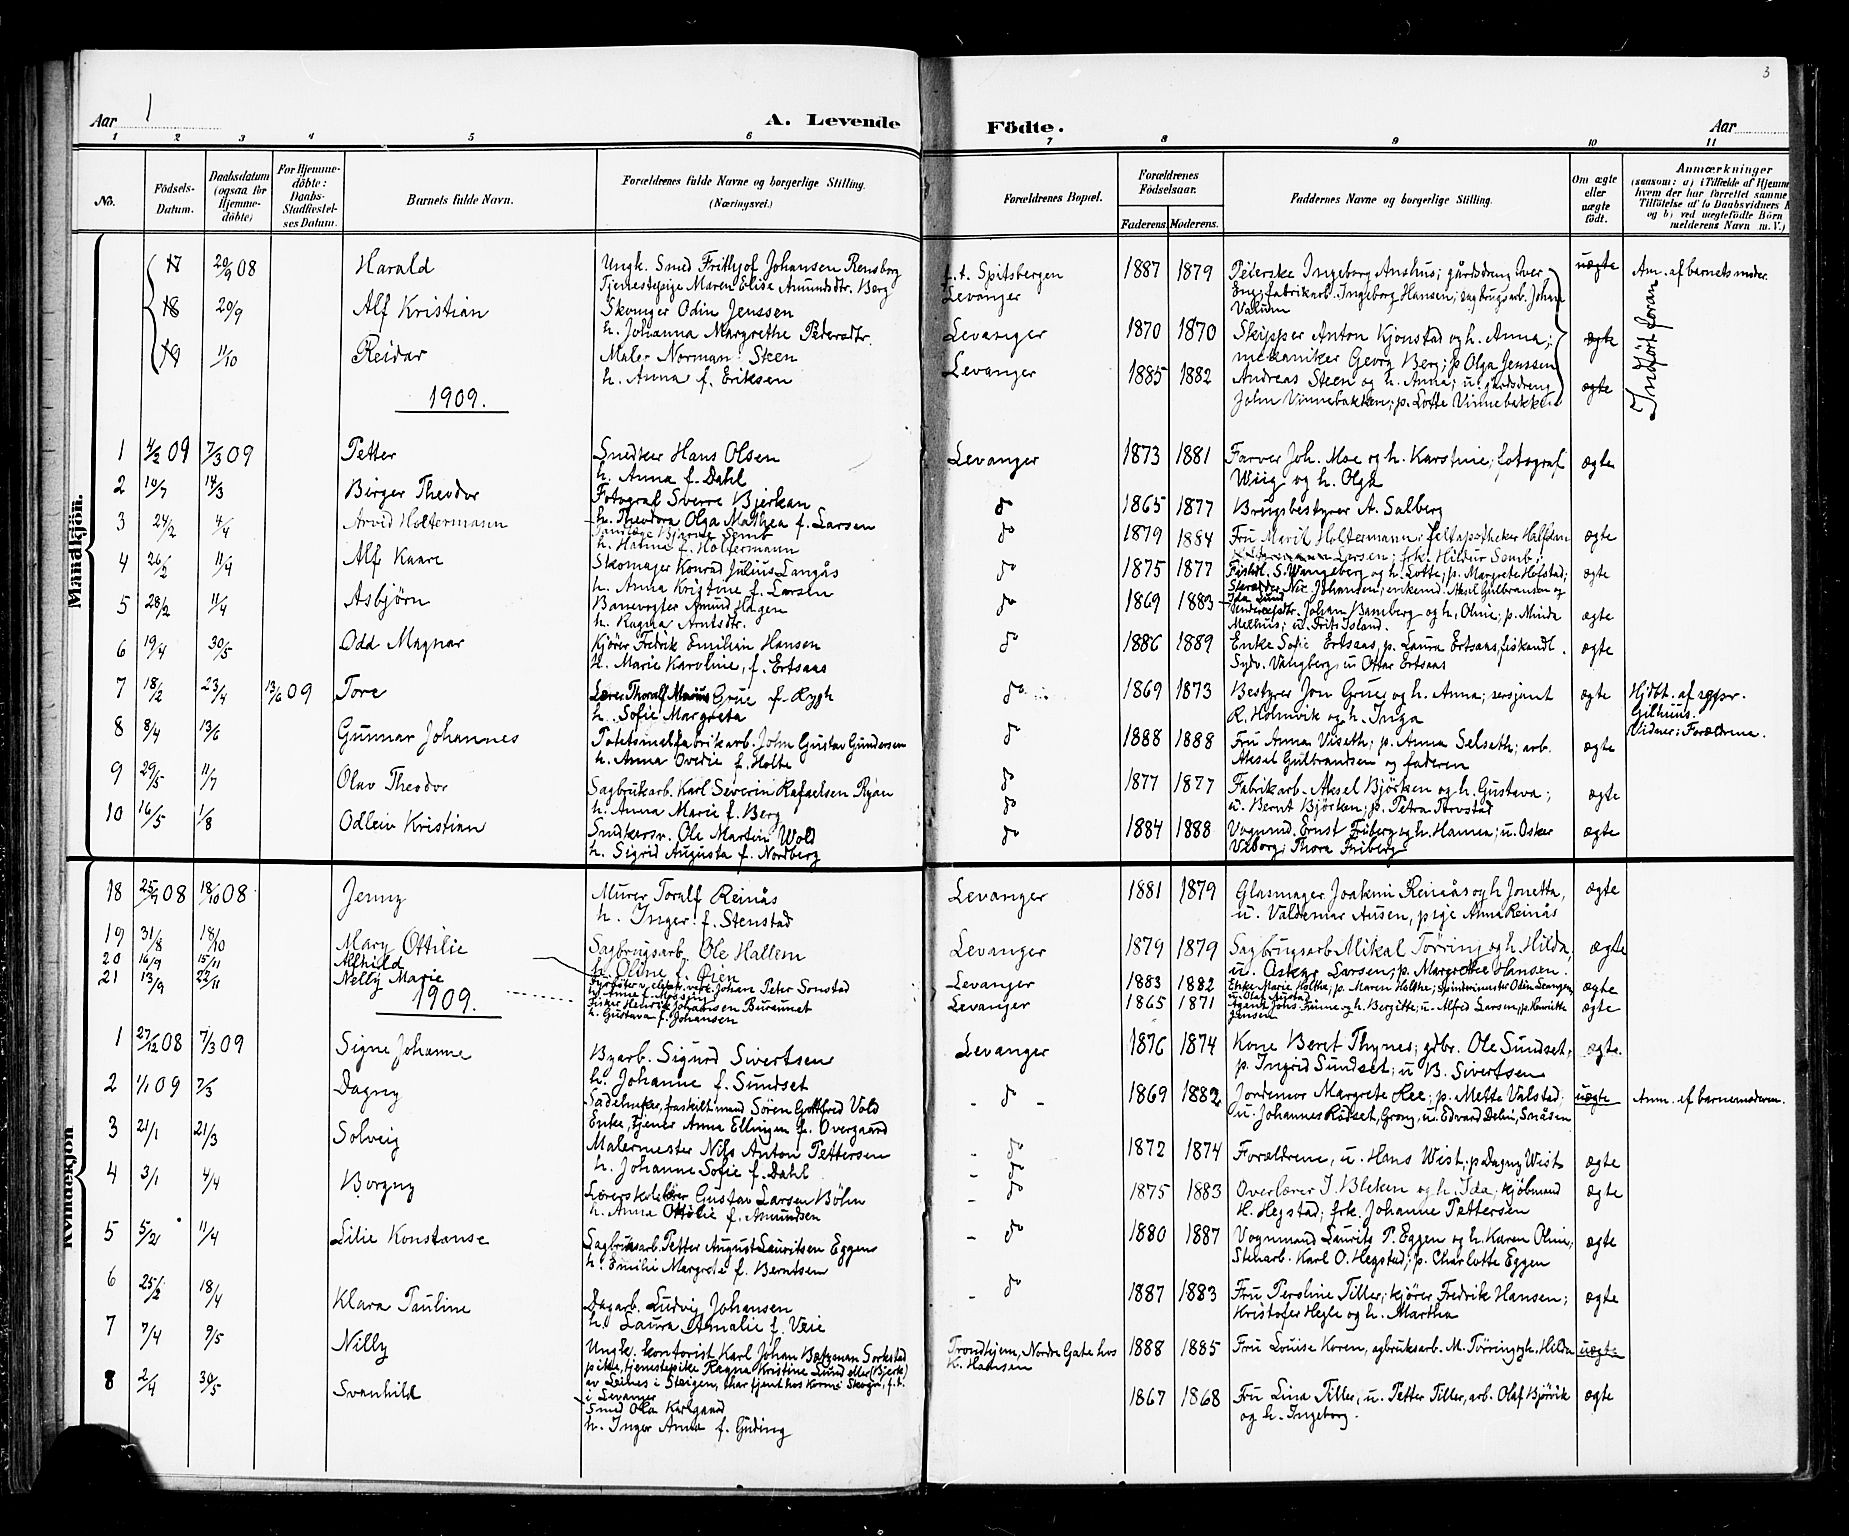 3
Aar 1
A. Levende
Födte.
Aar
1 2 3 4 5 6 7 8 9 10 11
No.
Födsels-Datum.
Daabsdatum (ogsaa for Hjemme-döbte)
For Hjemme-döbte: Daabs-Stadfæstel-ses Datum.
Barnets fulde Navn.
Forældrenes fulde Navne og borgerlige Stilling. (Næringsvei.)
Forældrenes Bopæl.
Forældrenes Födselsaar.
Faderens. Moderens.
Faddernes Navne og borgerlige Stilling.
Om ægte eller uægte födt.
Anmærkninger
(saasom: a) i Tilfælde af Hjemme
hvem der har forrettet samme
Tilföielse af to Daabsvidners
og b) ved uægtefödte Börn
melderens Navn m. V.)
Mandkjön.
17 20/9 08 Harald Ungk. Smed Frithjof Johansen Rensborg f. t. Spitsbergen 1887 1879 Peierske Ingeborg Anshus; gårdsdreng Iver uægte Anm. af barnets moder.
Tjenestepige Maren Elise Amundsdtr. Berg Levanger Eng; fabrikarb. Ingeborg Hansen; sagbrugsarb. Johan
Valum
18 20/9 Alf Kristian Skomager Odin Jenssen
h. Johanna Margrethe Pedersdtr. Levanger 1870 1870 Skipper Anton Kjönstad og h. Anna; ægte
mekaniker Georg Berg; p Olga Jenssen
19 11/10 Reidar Maler Norman Steen Levanger 1885 1882 Andreas Steen og h. Anna; u. gårdsdreng ægte
h. Anna f. Eriksen John Vinnebakken; p. Lotte Vinnebakken
Indført foran
1909.
1 4/2 09 7/3 09 Petter Snedker Hans Olsen Levanger 1873 1881 Farver Joh. Moe og h. Karstine; fotograf ægte
h. Anna f. Dahl Wiig og h. Olga
2 10/7 14/3 Birger Theodor Fotograf Sverre Bjerkan do 1865 1877 Brugsbestyrer A. Salberg
h. Theodora Olga Mathea f. Larsen
3 24/2 4/4 Arvid Holtermann Tandlæge Bjarne Semb do 1879 1884 Fru Marit Holtermann; feltapotheker Halfdan ægte
h. Hanna f. Holtermann Larsen; frk. Hildur Semb;
4 26/2 11/4 Alf Kaare Skomager Konrad Julius Langås do 1875 1877 Fiskhdl. S. Wangeberg og h. Lotte; p. Margrete Hofstad; ægte
h. Anna Kristine f. Larsen
5 28/2 11/4 Asbjörn Banevogter Amund Hagen do 1869 1883 Johan Bamberg og h. Oline; p. Minda ægte
h. Ragna Arntsdtr. Melhus; u. Frits Island.
6 19/4 30/5 Odd Magnar Kjörer Fredrik Emilian Hansen do 1886 1889 Enke Sofie Ertsaas, p. Laura Ertsaas, fiskandl. ægte
h. Marie Karoline, f. Ertsaas Sydv. Vangberg, u Ottar Ertsaas
7 18/2 23/4 13/6 09 Tore Lærer Thoralf Marius Grue f. Rygh do 1869 1873 Bestyrer Jon Grue og h. Anna; sersjant ægte Hjdbt. af sogpr.
h. Sofie Margreta R. Holmvik og h. Inga Gilhuus.
Vidner: Forældrene.
8 8/4 13/6 Gunnar Johannes Potetsmelfabrikarb. John Gustav Gundersen do 1888 1888 Fru Anna Viseth; p. Anna Selseth; arb. ægte
h. Anna Ovedie f. Holte Aksel Gulbrandsen og faderen
9 29/5 11/7 Olav Theodor Sagbrukarb. Karl Severin Rafaelsen Ryan do 1877 1877 Fabrikarb. Aksel Björken og h. Gustava; ægte
h. Anna Marie f. Berg do u. Bernt Björken; p. Petra Torvstad
10 16/5 1/8 Odleiv Kristian Snedkersv. Ole Martin Wold do 1884 1888 Vognmd. Ernst Friberg og h. Hanna; u. Oskar ægte
h. Sigrid Augusta f. Nordberg Viborg; Thora Friberg
Kvindekjön
18 25/7 08 18/10 08 Jenny Murer Toralf Reinås Levanger 1881 1879 Glasmager Joakim Reinås og h Jonetta, ægte
h. Inger f. Stenstad u. Valdemar Ausen, pige Anna Reinås
19 31/8 18/10 Mary Ottilie Sagbrugsarb Ole Hallem Levanger 1879 1879 Sagbrugsarb Mikal Tørring og h. Hilda, ægte
h. Oline f. Øien u. Oskar Larsen; p. Margrethe Hansen.
20 16/9 15/11 Alhild Johan Peter Sonstad Levanger 1883 1882 Enke Marie Holthe; p. Maren Holthe; ægte
21 13/9 22/11 Nelly Marie Fisker Henrik Johansen Burunet Levanger 1865 1871 Agent Johs. Finne og h. Bergitte; u. Alfred Larsen, p. Henriette ægte
h. Gustava f. Johansen Jensen
1909.
1 27/12 08 7/3 09 Signe Johanne Byarb. Sigurd Sivertsen Levanger 1876 1874 Kone Beret Thynes; gdbr. Ole Sundset, ægte.
h. Johanne f. Sundset p. Ingrid Sundset; u B. Sivertsen
2 1/1 09 7/3 Dagny Sadelmaker, fraskilt mand Sören Gottfred Vold - do - 1869 1882 Jordemor Margrete Hee; p. Mette Valstad; uægte Anm. af barnemoderen.
Enke, tjener Anna Ellingsen f. Overgaard u. Johannes Rödset, Grong, u. Edvard Selin, Snåsen
3 21/1 21/3 Solveig Malermester Nils Anton Pettersen - do 1872 1874 Forældrene, u. Hans Wist. p Dagny Wist ægte
h. Johanne Sofie f. Dahl - do
4 3/1 4/4 Borgny Lærerskolelærer Gustav Larsen Böhn - do 1875 1883 Overlærer I. Bleken og h. Ida; kjöbmand ægte
h. Anna Ottilie f. Amundsen H. Hegstad; frk. Johanne Pettersen
5 5/2 11/4 Lilie Konstanse Sagbruksarb. Petter August Lauritsen Eggen - do 1880 1887 Vognmand Laurits P. Eggen og h. Karen Oline; ægte
h. Emilie Margrete f. Berntsen Stenarb. Karl O. Hegstad; p. Charlotte Eggen
6 25/2 18/4 Klara Pauline Dagarb. Ludvig Johansen - do 1887 1883 Fru Peroline Tiller; kjörer Fredrik Hansen; ægte
h. Laura Amalie f. Veie Kristofer Hegle og h. Martha
7 7/4 9/5 Nilly Ungk. kontorist Karl Johan Botzman Sorkstad Trondhjem, Nordre Gate hos 1888 1885 Fru Louise Koren, sagbruksarb. M. Tørring og h. Hilda uægte
pike, tjenestepike Ragna Kristine Lund eller (Bjerk) K. Hansen
av Leines i Steigen, (har tjent hos Skogn, f. t.
i Levanger
8 2/4 30/5 Svanhild Smed Ola Karlgaard 1867 1868 Fru Lina Tiller, u. Petter Tiller, arb. Olaf Bjørvik ægte
h. Inger Anna f. Guding og h. Ingeborg.